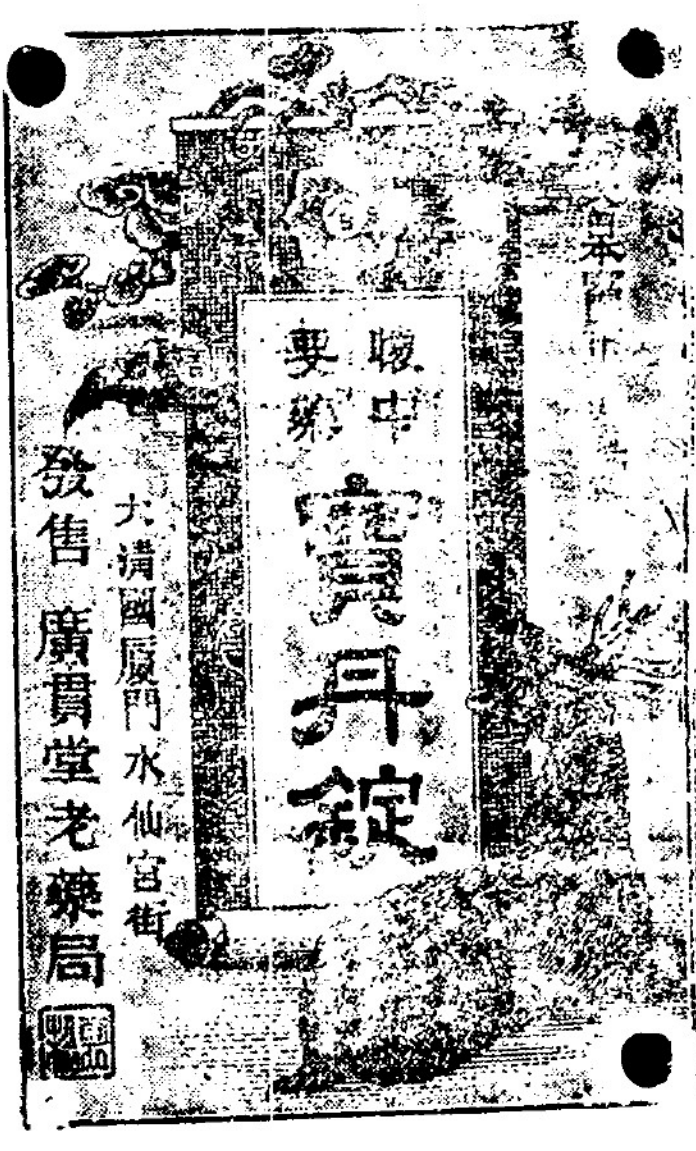 日本
懷中
要藥
寶丹錠
大清國厦門水仙宮街
發售 廣貫堂老藥局